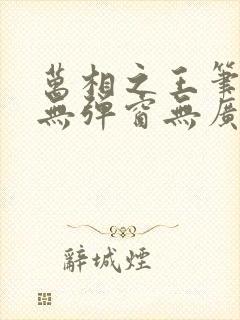 萬相之王筆
無彈窗無廣
辭城煙